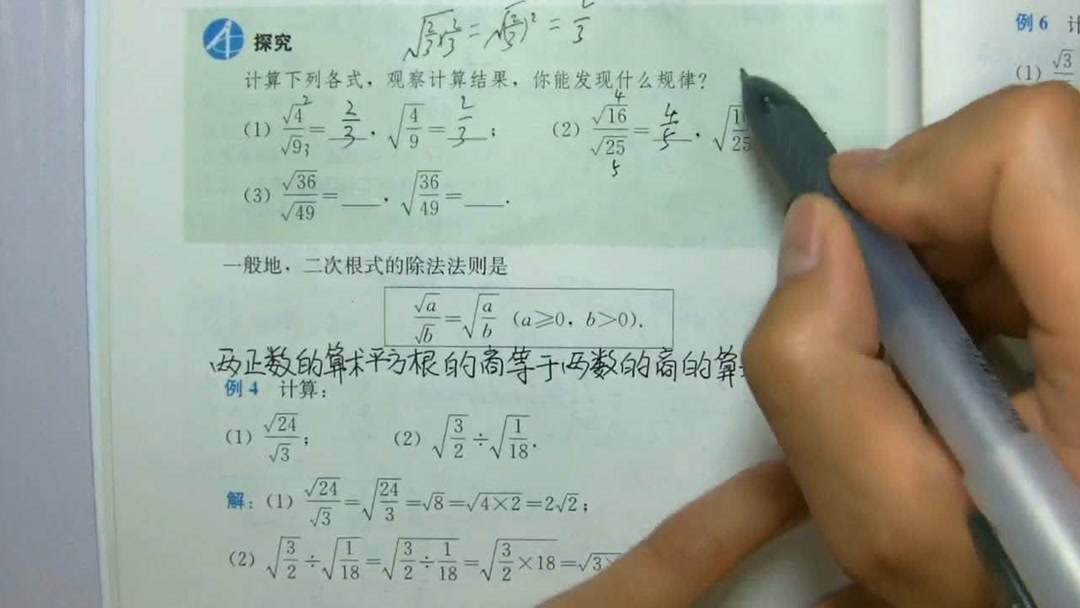 √(2/3 × 2/3) = √(2/3)² = 2/3
例6 计
探究
计算下列各式，观察计算结果，你能发现什么规律？
(1) √3
(1) √4/√9 = 2/3，√(4/9) = 2/3；  (2) √16/√25 = 4/5，
2 3 4 5
(3) √36/√49 = ___，√(36/49) = ___．
一般地，二次根式的除法法则是
√a/√b = √(a/b) (a≥0，b>0)．
两正数的算术平方根的商等于两数的商的算
例4 计算：
(1) √24/√3；  (2) √(3/2) ÷ √(1/18)．
解：(1) √24/√3 = √(24/3) = √8 = √(4×2) = 2√2；
(2) √(3/2) ÷ √(1/18) = √(3/2 ÷ 1/18) = √(3/2 × 18) = √3×